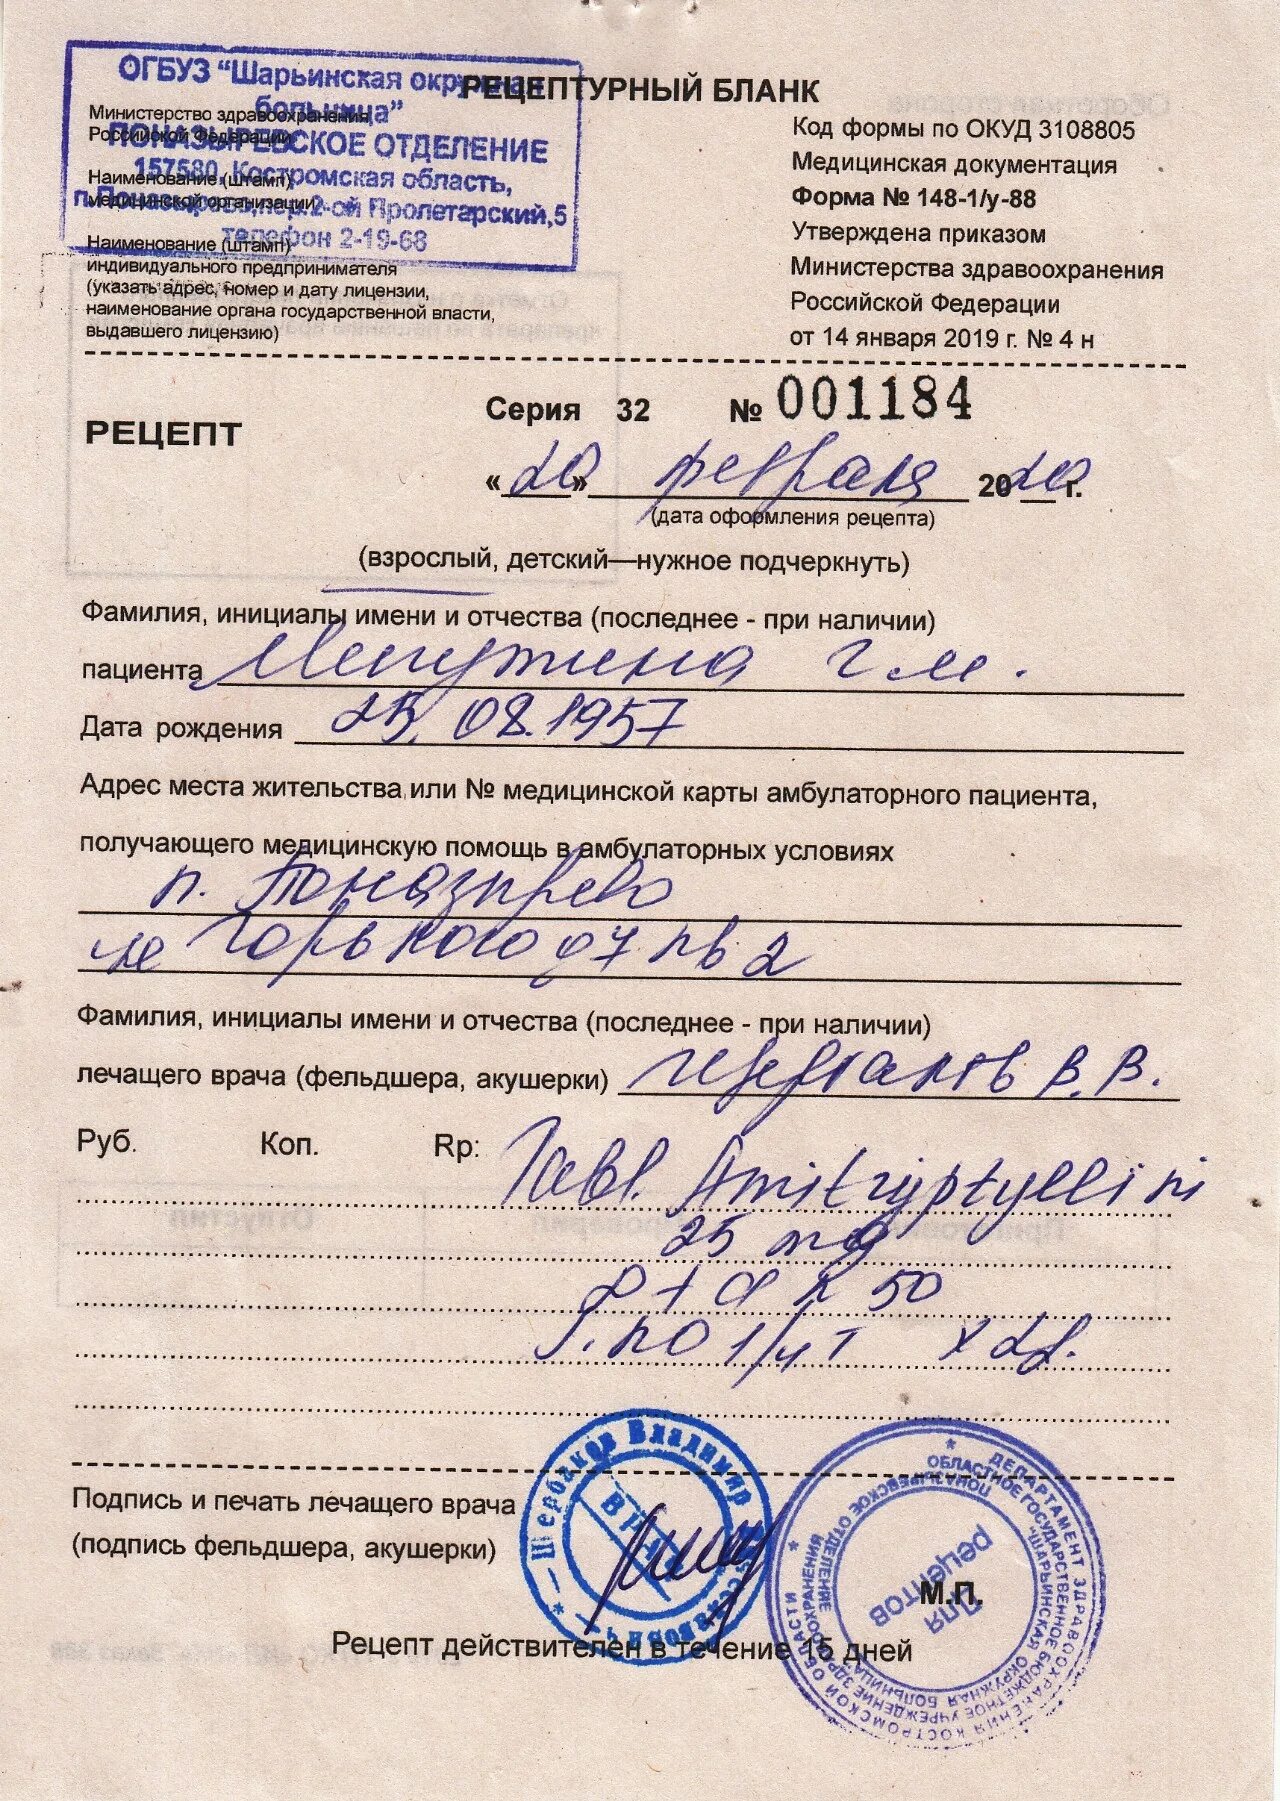 ОГБУЗ "Шарьинская окружная
больница"
ПОНАЗЫРЕВСКОЕ ОТДЕЛЕНИЕ
157580, Костромская область,
п.Поназырево, пер.2-ой Пролетарский,5
телефон 2-19-68
Министерство здравоохранения
Российской Федерации
Наименование (штамп)
медицинской организации
Наименование (штамп)
индивидуального предпринимателя
(указать адрес, номер и дату лицензии,
наименование органа государственной власти,
выдавшего лицензию)
РЕЦЕПТУРНЫЙ БЛАНК
Код формы по ОКУД 3108805
Медицинская документация
Форма № 148-1/у-88
Утверждена приказом
Министерства здравоохранения
Российской Федерации
от 14 января 2019 г. № 4 н
РЕЦЕПТ
Серия 32 № 001184
«20» февраля 2020 г.
(дата оформления рецепта)
(взрослый, детский—нужное подчеркнуть)
Фамилия, инициалы имени и отчества (последнее - при наличии)
пациента Г.М.
Дата рождения 25.08.1957
Адрес места жительства или № медицинской карты амбулаторного пациента,
получающего медицинскую помощь в амбулаторных условиях
п. Поназырево
Горького 7 кв 2
Фамилия, инициалы имени и отчества (последнее - при наличии)
лечащего врача (фельдшера, акушерки) В.В.
Руб. Коп. Rp: Tabl. Amitryptyllini
25 mg
N 50
S. по 1/4 т
Подпись и печать лечащего врача
(подпись фельдшера, акушерки)
Щербаков Владимир Вячеславович
ВРАЧ
ДЕПАРТАМЕНТ ЗДРАВООХРАНЕНИЯ КОСТРОМСКОЙ ОБЛАСТИ
ОБЛАСТНОЕ ГОСУДАРСТВЕННОЕ БЮДЖЕТНОЕ УЧРЕЖДЕНИЕ ЗДРАВООХРАНЕНИЯ
"ШАРЬИНСКАЯ ОКРУЖНАЯ БОЛЬНИЦА"
ПОНАЗЫРЕВСКОЕ ОТДЕЛЕНИЕ
Для
рецептов
М.П.
Рецепт действителен в течение 15 дней